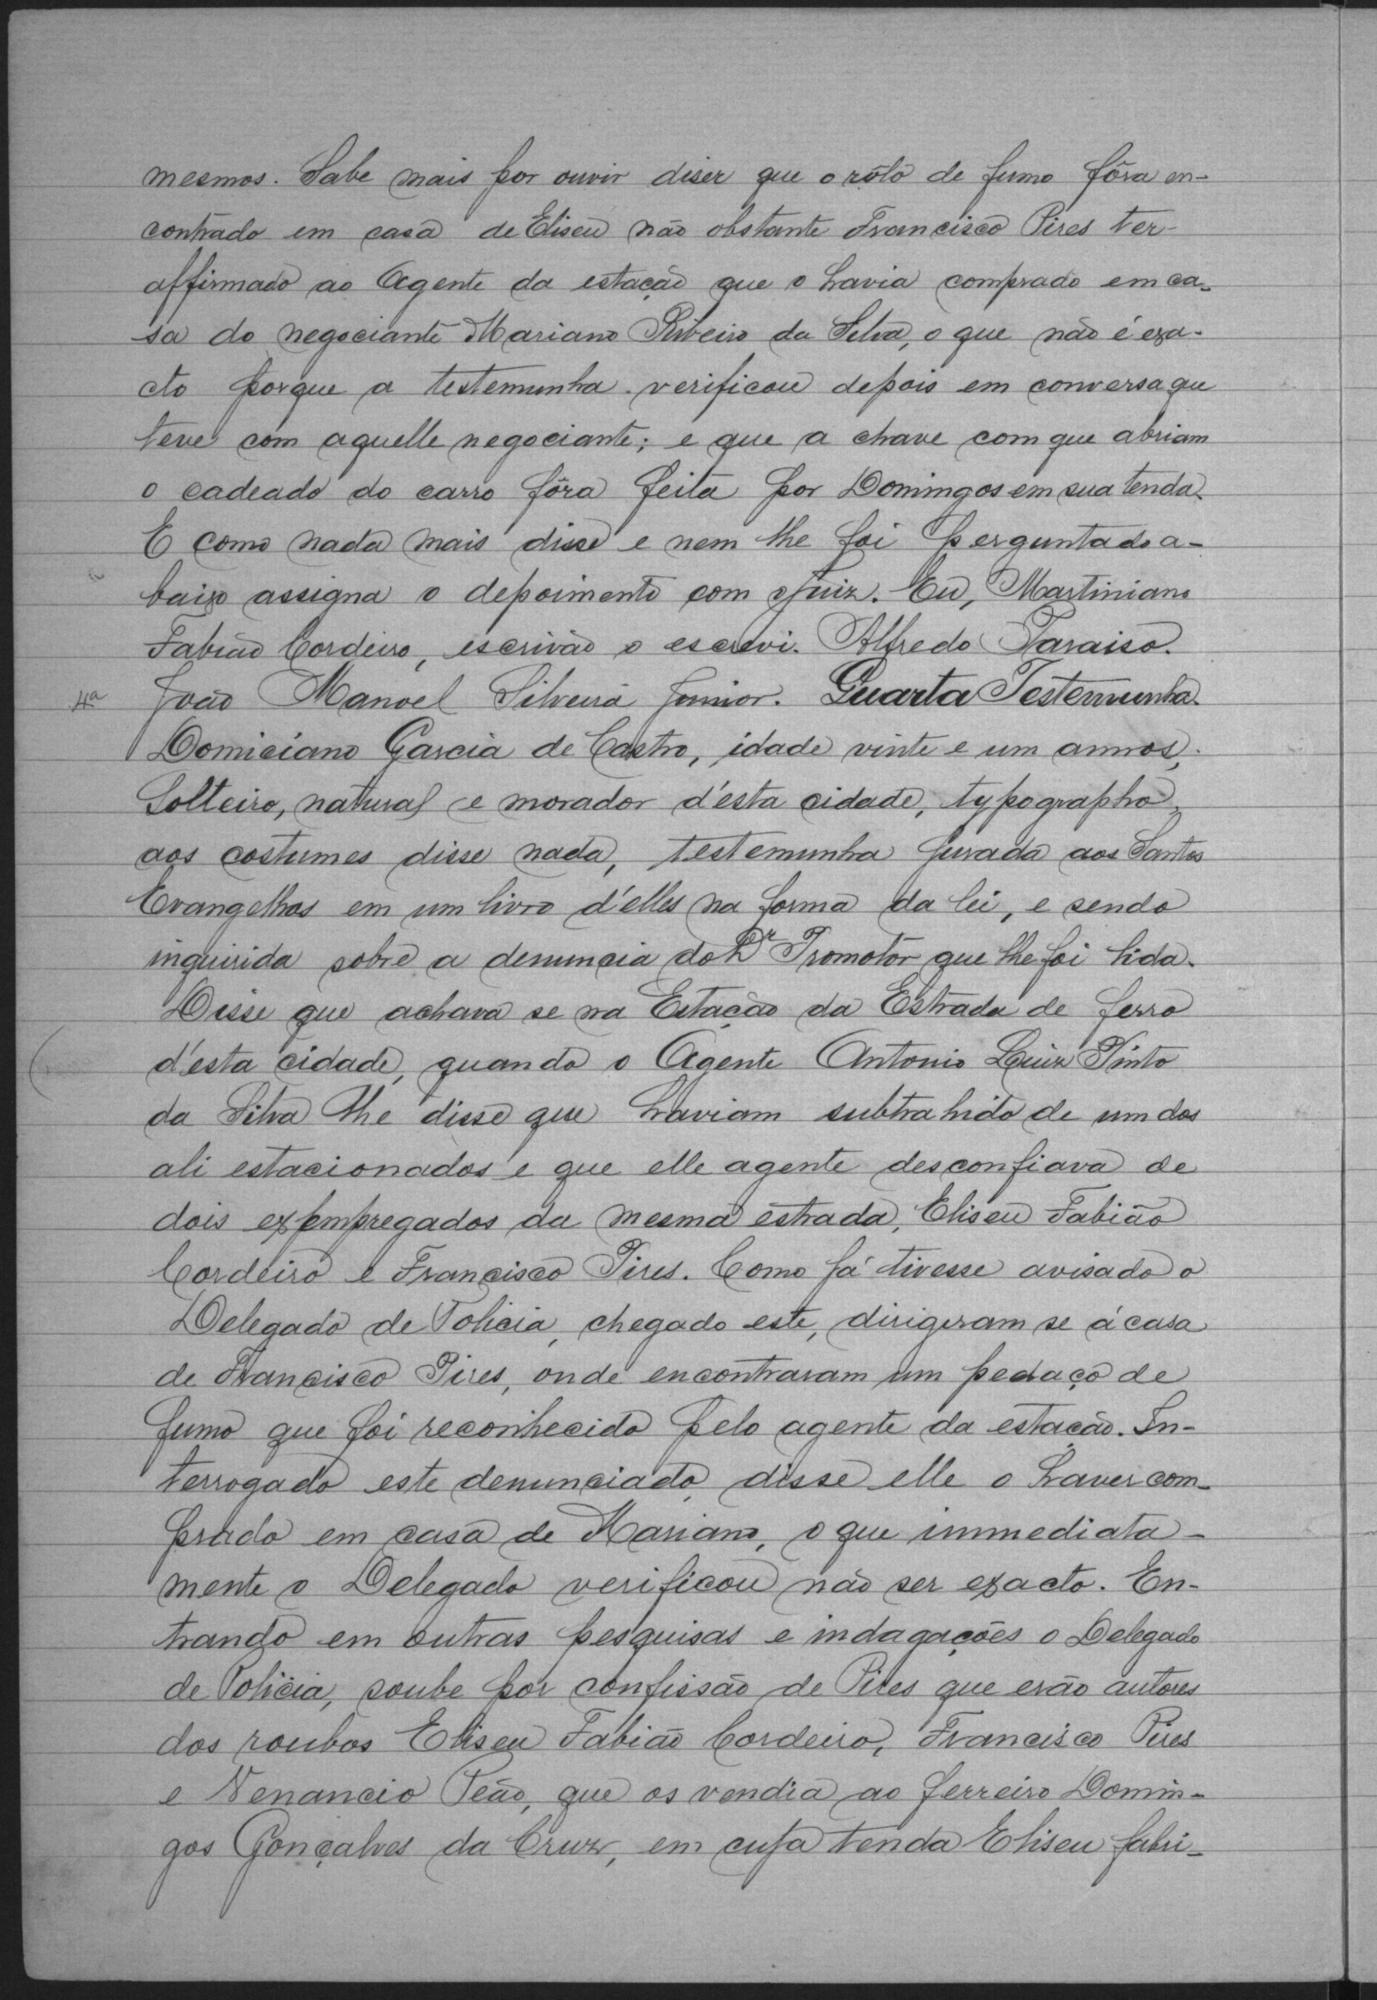 mesmos. Sabe mais por ouvir diser que o rôlo de fumo fôra en-
contrado em casa de Eliseu não obstante Francisco Pires ter
affirmado ao Agente da estação que o havia comprado em ca-
sa do negociante Mariano Ribeiro da Silva, o que não é exa-
cto porque a testemunha verificou depois em conversa que
teve com aquelle negociante; e que a chave com que abriam
o cadeado do carro fôra feita por Domingos em sua tenda.
E como nada mais disse e nem lhe foi perguntado a-
baixo assigna o depoimento com o Juiz. Eu, Martiniano
Fabião Cordeiro, escrivão o escrevi. Alfredo Paraiso.
4ª João Manoel Silveira Junior. Quarta Testemunha.
Domiciano Garcia de Castro, idade vinte e um annos,
Solteiro, natural e morador d'esta cidade, typographo,
aos costumes disse nada, testemunha jurada aos Santos
Evangelhos em um livro d'elles na forma da lei, e sendo
inquirida sobre a denuncia do Dr Promotor que lhe foi lida.
Disse que achava se na Estação da Estrada de ferro
d'esta cidade, quando o Agente Antonio Luiz Pinto
da Silva lhe disse que haviam subtrahido de um dos
ali estacionados e que elle agente desconfiava de
dois exempregados da mesma estrada, Eliseu Fabião
Cordeiro e Francisco Pires. Como já tivesse avisado o
Delegado de Policia, chegado este, dirigeram se á casa
de Francisco Pires, onde encontraram um pedaço de
fumo que foi reconhecido pelo agente da estação. In-
terrogado este denunciado, disse elle o haver com-
prado em casa de Mariano, o que immediata-
mente o Delegado verificou não ser exacto. En-
trando em outras pesquisas e indagações o Delegado
de Policia, soube por confissão de Pires que erão autores
dos roubos Eliseu Fabião Cordeiro, Francisco Pires
e Venancio Peão, que os vendia ao ferreiro Domin-
gos Gonçalves da Cruz, em cuja tenda Eliseu fabri-